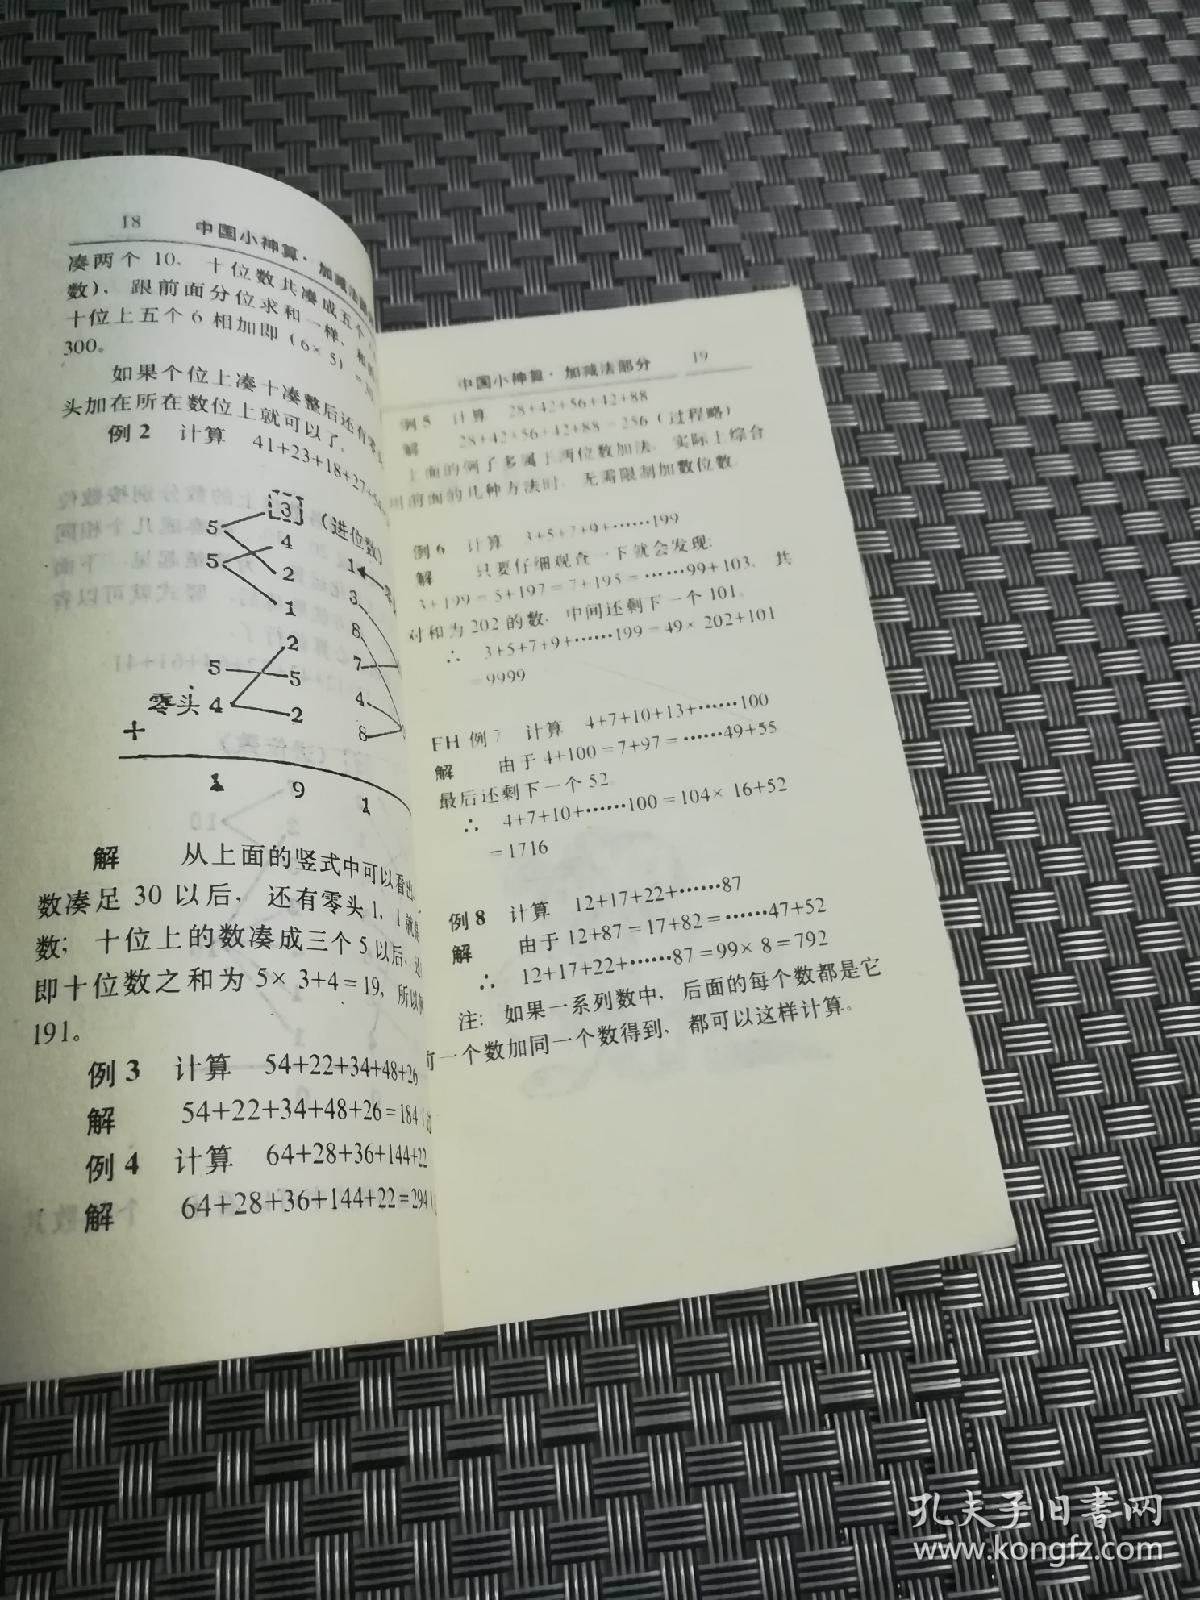 18 中国小神算·加减法
凑两个 10、十位数共凑成五个
数), 跟前面分位求和一样,
十位上五个 6 相加即 (6×5)
300。
如果个位上凑十凑整后还有零
头加在所在数位上就可以了。
例2 计算 41+23+18+27+54
5 3 (进位数)
4
5 2 1
1 3
2 8
5 5 7
零头 4 2 4
+ 8
1 9 1
解 从上面的竖式中可以看出,
数凑足 30 以后, 还有零头 1, 1 就
数; 十位上的数凑成三个 5 以后,
即十位数之和为 5×3+4=19, 所以
191。
例3 计算 54+22+34+48+26
解 54+22+34+48+26=184
例4 计算 64+28+36+144+22
解 64+28+36+144+22=294
中国小神算·加减法部分 19
例5 计算 28+42+56+42+88
解 28+42+56+42+88=256 (过程略)
上面的例子多属于两位数加法, 实际上综合
用前面的几种方法时, 无需限制加数位数。
例6 计算 3+5+7+9+……199
解 只要仔细观查一下就会发现:
3+199=5+197=7+195=……99+103, 共
对和为 202 的数, 中间还剩下一个 101。
∴ 3+5+7+9+……199=49×202+101
=9999
FH 例7 计算 4+7+10+13+……100
解 由于 4+100=7+97=……49+55
最后还剩下一个 52.
∴ 4+7+10+……100=104×16+52
=1716
例8 计算 12+17+22+……87
解 由于 12+87=17+82=……47+52
∴ 12+17+22+……87=99×8=792
注: 如果一系列数中, 后面的每个数都是它
前一个数加同一个数得到, 都可以这样计算。
孔夫子旧書网
www.kongfz.com